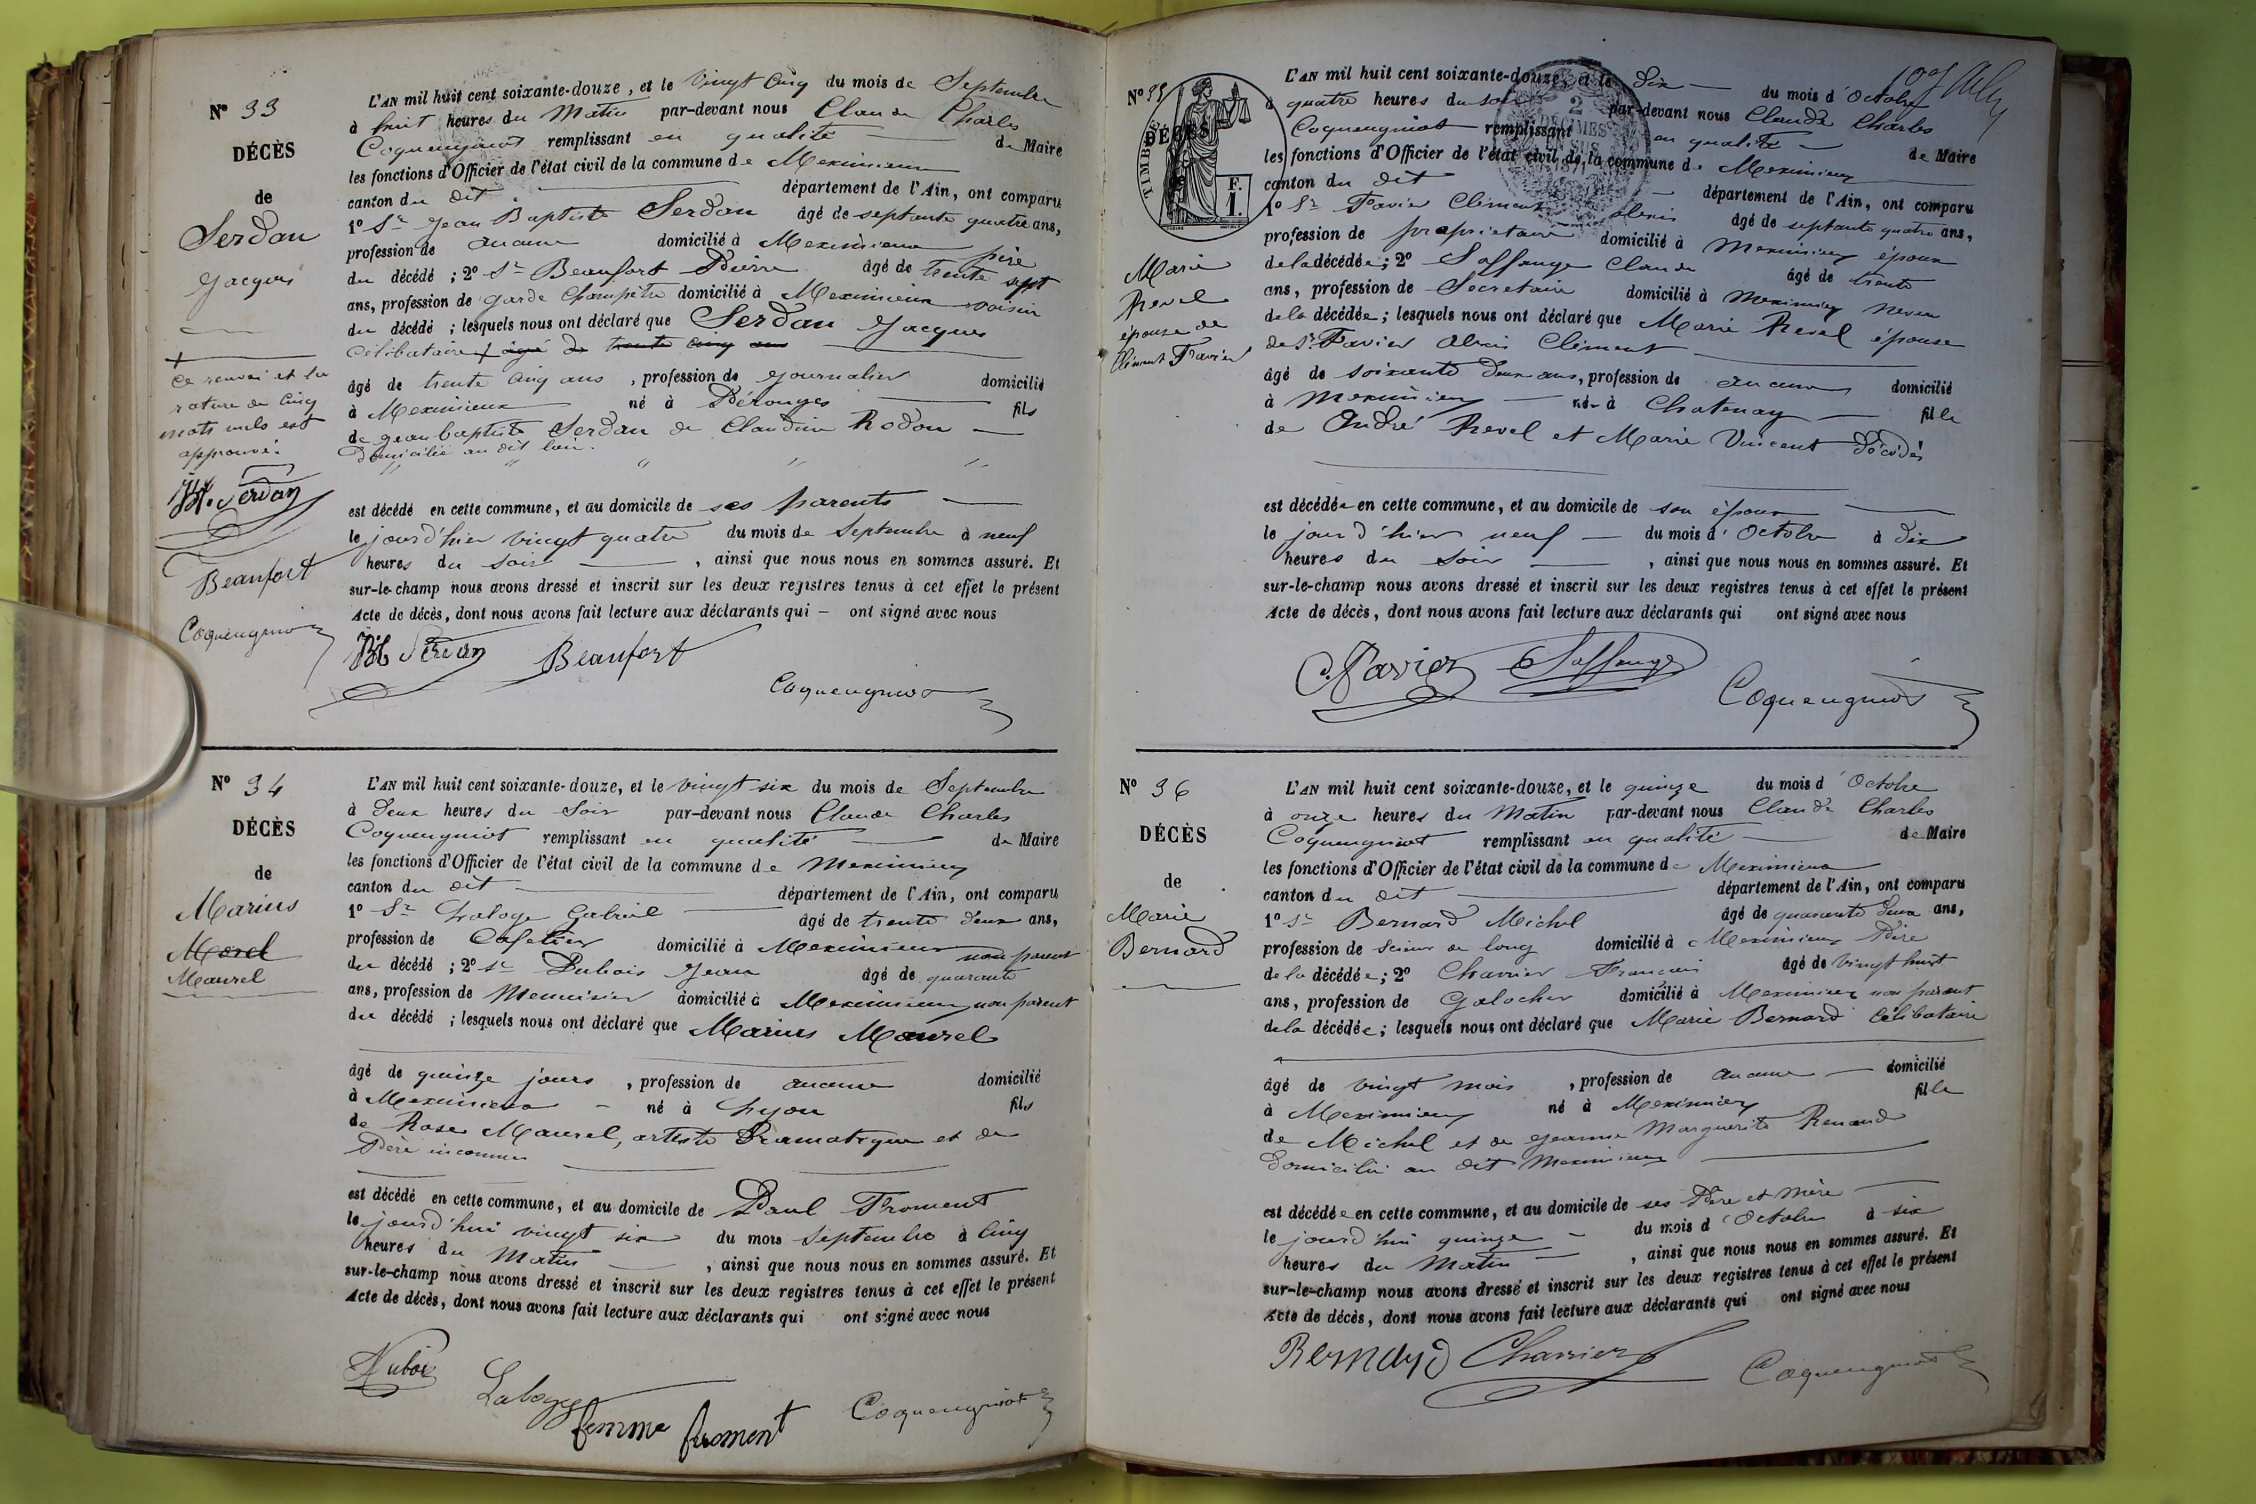 N° 33
DÉCÈS
de
Serdan
Jacques
ce renvoi et la
rature de cinq
mots nuls est
approuvé.
JB Serdan
Beaufort
Coquengniot
L'AN mil huit cent soixante-douze, et le vingt cinq du mois de Septembre
à huit heures du Matin par-devant nous Claude Charles
Coquengniot remplissant en qualité de Maire
les fonctions d'Officier de l'état civil de la commune de Meximieux
canton du dit département de l'Ain, ont comparu
1° Sr Jean Baptiste Serdan âgé de septante quatre ans,
profession de aucune domicilié à Meximieux père
du décédé ; 2° Sr Beaufort Pierre âgé de trente sept
ans, profession de garde Champêtre domicilié à Meximieux voisin
du décédé ; lesquels nous ont déclaré que Serdan Jacques
célibataire âgé de trente cinq ans
âgé de trente cinq ans , profession de journalier domicilié
à Meximieux né à Pérouges fils
de Jean baptiste Serdan de Claudine Rodon
domicilié au dit lieu.
est décédé en cette commune, et au domicile de ses parents
le jourd'hier vingt quatre du mois de Septembre à neuf
heures du Soir , ainsi que nous nous en sommes assuré. Et
sur-le-champ nous avons dressé et inscrit sur les deux registres tenus à cet effet le présent
Acte de décès, dont nous avons fait lecture aux déclarants qui – ont signé avec nous
JB Serdan Beaufort
Coquengniot
N° 34
DÉCÈS
de
Marius
Morel
Maurel
L'AN mil huit cent soixante-douze, et le vingt six du mois de Septembre
à deux heures du Soir par-devant nous Claude Charles
Coquengniot remplissant en qualité de Maire
les fonctions d'Officier de l'état civil de la commune de Meximieux
canton du dit département de l'Ain, ont comparu
1° Sr Laloge Gabriel âgé de trente deux ans,
profession de Cafetier domicilié à Meximieux non parent
du décédé ; 2° Sr Dubois Jean âgé de quarante
ans, profession de Menuisier domicilié à Meximieux non parent
du décédé ; lesquels nous ont déclaré que Marius Maurel
âgé de quinze jours , profession de aucune domicilié
à Meximieux né à Lyon fils
de Rose Maurel, artiste Dramatique et de
Père inconnu
est décédé en cette commune, et au domicile de Paul Froment
le jourd'hui vingt six du mois Septembre à Cinq
heures du Matin , ainsi que nous nous en sommes assuré. Et
sur-le-champ nous avons dressé et inscrit sur les deux registres tenus à cet effet le présent
Acte de décès, dont nous avons fait lecture aux déclarants qui ont signé avec nous
Dubois
femme froment
Coquengniot
N° 35
DÉCÈS
TIMBRE
F.
1.
2
DÉCIMES
EN SUS
Marie
Revel
épouse de
Clément Favier
L'AN mil huit cent soixante-douze, et le Dix du mois d'Octobre
à quatre heures du soir par-devant nous Claude Charles
Coquengniot remplissant en qualité de Maire
les fonctions d'Officier de l'état civil de la commune de Meximieux
canton du dit département de l'Ain, ont comparu
1° Sr Favier Clément alexis âgé de septante quatre ans,
profession de propriétaire domicilié à Meximieux époux
de la décédée ; 2° Saffange Claude âgé de trente
ans, profession de Secretaire domicilié à Meximieux neveu
de la décédée ; lesquels nous ont déclaré que Marie Revel épouse
de Sr Favier Alexis Clément
âgé de soixante deux ans, profession de aucune domicilié
à Meximieux né à Chatenay fille
de André Revel et Marie Vincent décédés
est décédée en cette commune, et au domicile de son époux
le jourd'hier neuf du mois d'Octobre à Dix
heures du Soir , ainsi que nous nous en sommes assuré. Et
sur-le-champ nous avons dressé et inscrit sur les deux registres tenus à cet effet le présent
Acte de décès, dont nous avons fait lecture aux déclarants qui ont signé avec nous
C. Favier Saffange
Coquengniot
N° 36
DÉCÈS
de
Marie
Bernard
L'AN mil huit cent soixante-douze, et le quinze du mois d'Octobre
à onze heures du Matin par-devant nous Claude Charles
Coquengniot remplissant en qualité de Maire
les fonctions d'Officier de l'état civil de la commune de Meximieux
canton du dit département de l'Ain, ont comparu
1° Sr Bernard Michel âgé de quarante deux ans,
profession de scieur de long domicilié à Meximieux Père
de la décédée ; 2° Charrier François âgé de vingt huit
ans, profession de Galocher domicilié à Meximieux non parent
de la décédée ; lesquels nous ont déclaré que Marie Bernard célibataire
âgé de vingt mois , profession de aucune domicilié
à Meximieux né à Meximieux fille
de Michel et de Jeanne Marguerite Renaud
domicilié au dit Meximieux
est décédée en cette commune, et au domicile de ses Père et Mère
le jourd'hui quinze du mois d'Octobre à six
heures du Matin , ainsi que nous nous en sommes assuré. Et
sur-le-champ nous avons dressé et inscrit sur les deux registres tenus à cet effet le présent
Acte de décès, dont nous avons fait lecture aux déclarants qui ont signé avec nous
Bernard Charrier
Coquengniot